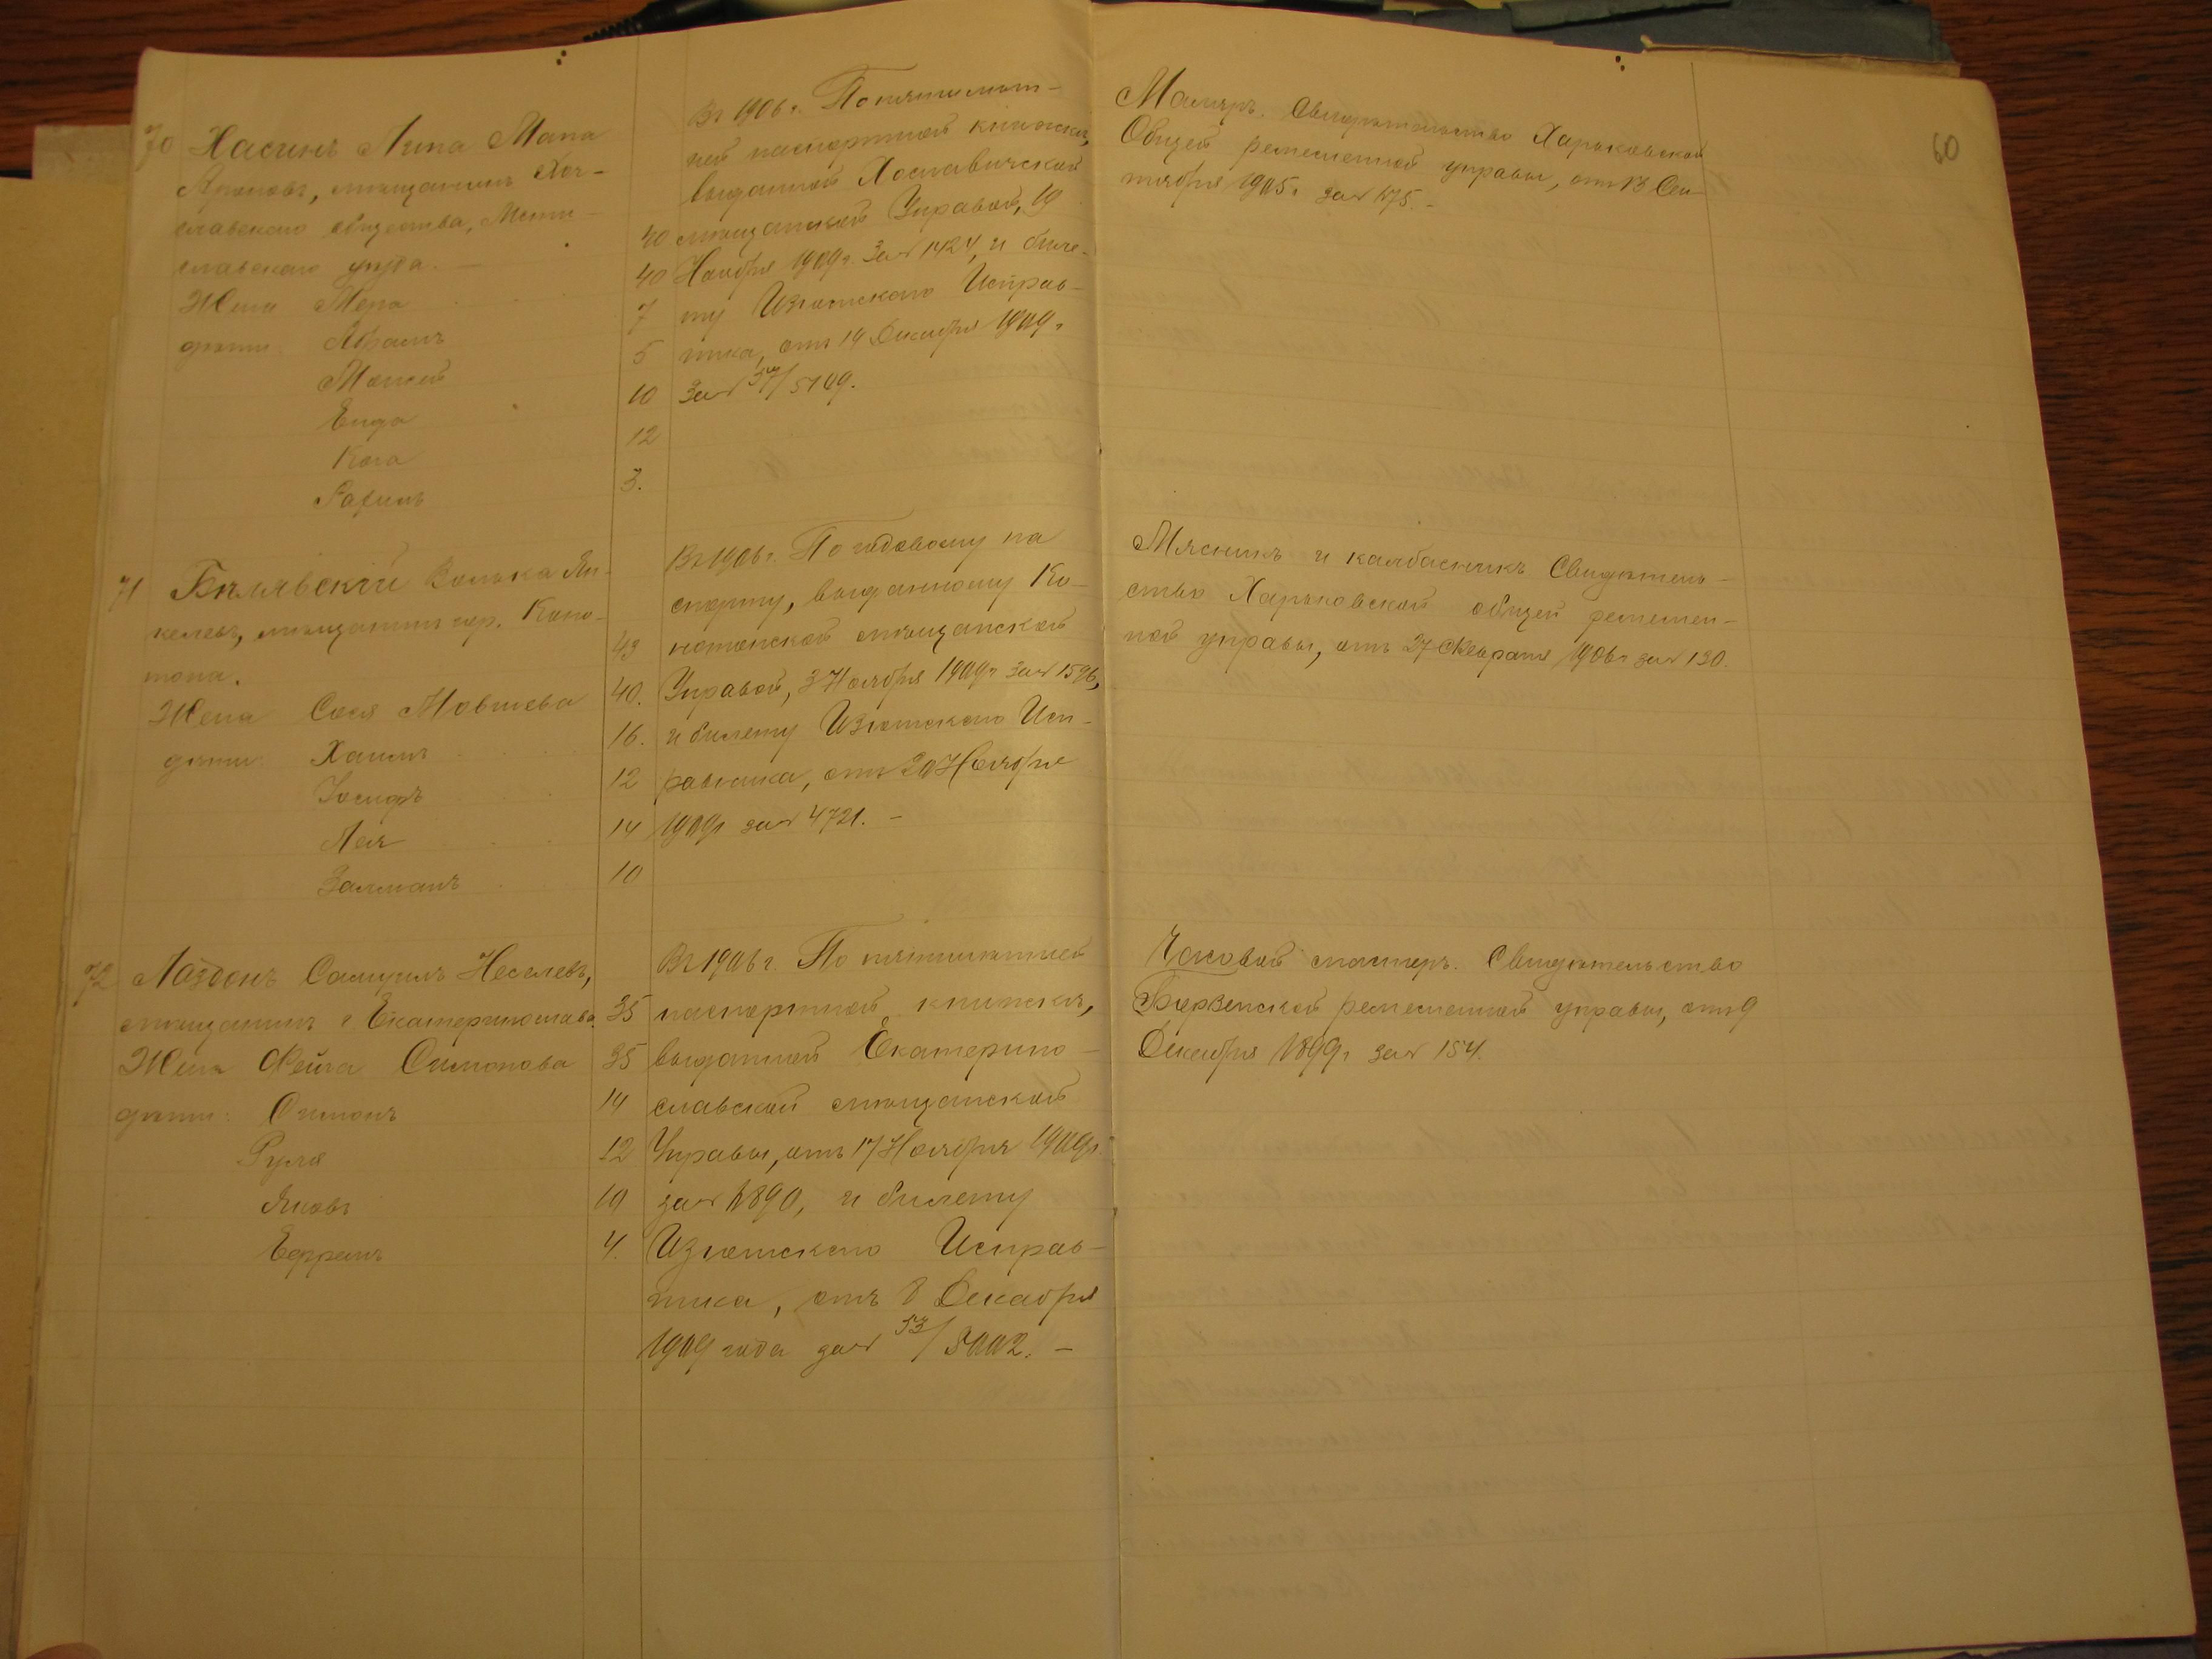 60
70 Хасинъ Липа Мапа
Ароновъ, мѣщанинъ Хос-
лавскаго общества, Мсти-
славскаго уѣзда. —
40
Жена Мера 40
дѣти Абрамъ 7
Моисей 5
Енда 10
Кога 12
3.
Въ 1906 г. По пятилѣт-
ней паспортной книжкѣ,
выданной Хославичской
мѣщанской Управой, 19
Ноября 1909 г. за № 1424, и биле-
ту Изюмскаго Исправ-
ника, отъ 14 Декабря 1909 г
за № /5109.
Маляръ. Свидѣтельство Харьковской
Общей ремесленной управы, отъ 13 Сен-
тября 1905 г за № 175. —
71 Бѣлявскій Волька Ян-
келевъ, мѣщанинъ гор. Коно-
топа. 43
Жена Сося Мовшева 40.
дѣти Хаимъ 16.
Іосифъ 12
Лея 14
Залманъ 10
Въ 1906 г. По годовому па
спорту, выданному Ко-
нотопской мѣщанской
Управой, 3 Ноября 1909 г за № 1596,
и билету Изюмскаго Исп-
равника, отъ 20 Ноября
1909 г за № 4721. —
Мясникъ и калбасникъ Свидѣтель-
ство Харьковской общей ремеслен-
ной управы, отъ 27 Февраля 1906 г за № 130.
72 Лаздонъ Самуилъ Хеселевъ,
мѣщанинъ г Екатеринослава. 35
Жена Фейга Симонова 35
дѣти: Симонъ 14
Руля 12
Яковъ 10
Ефремъ 4.
Въ 1906 г. По пятилѣтней
паспортной книжкѣ,
выданной Екатерино-
славской мѣщанской
Управы, отъ 17 Ноября 1909 г
за № 890, и билету
Изюмскаго Исправ-
ника, отъ 8 Декабря
1909 года за № 53/5002. —
Часовой мастеръ. Свидѣтельство
Борзенской ремесленной управы, отъ 9
Декабря 1899 г за № 154.